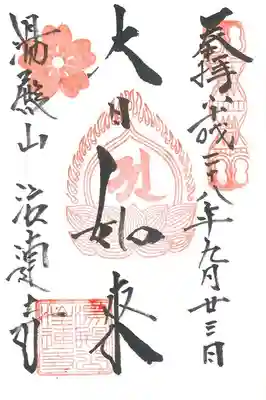 奉拝 平成二十八年九月廿三日
大日如来
湯殿山 注連寺